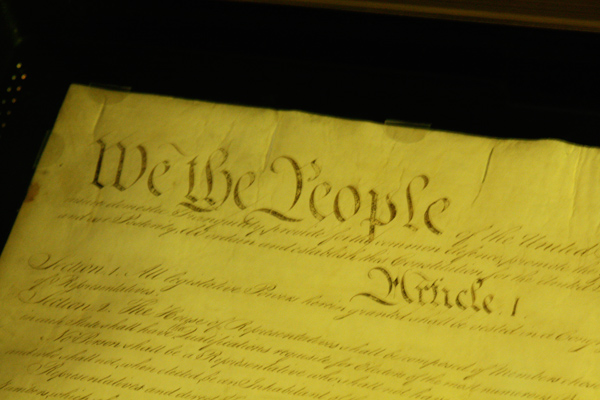 We the People of the United
insure domestic Tranquility, provide for the common defence, promote the
and our Posterity, do ordain and establish this Constitution for the United
Article. I.
Section. 1. All legislative Powers herein granted shall be vested in a Cong
of Representatives.
Section. 2. The House of Representatives shall be composed of Members chose
in each State shall have Qualifications requisite for Electors of the most numerous
No Person shall be a Representative who shall not have
and who shall not, when elected, be an Inhabitant of
Representatives and direct